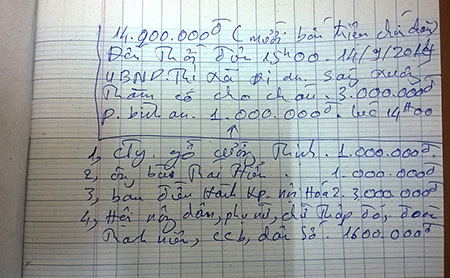 14.900.000đ (mười bốn triệu chín trăm)
Đến Thời điểm 15h00. 14/9/2016
UBND. Thị xã Dĩ An. Sang xuống
Thăm có cho cháu. 3.000.000đ
p. bình an. 1.000.000đ. lúc 14H00
1, Cty. gỗ Thịnh. 1.000.000đ
2, ông bà Hai Hiền. 1.000.000đ
3, ban điều Hành Kp. nội Hóa 2. 3.000.000đ
4, Hội nông dân, phụ nữ, chữ Thập đỏ, đoàn
Thanh niên, ccb, dân số. 1.600.000đ